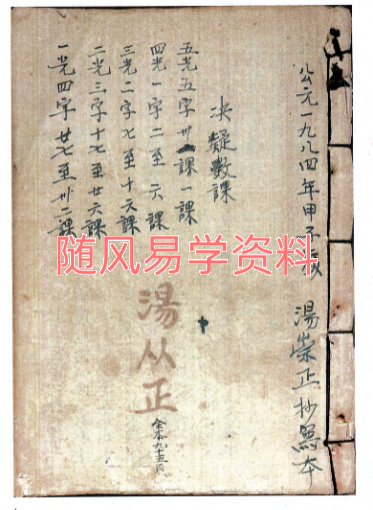 公元一九八四年甲子 湯崇正抄寫本
决疑數課
五光五字卅課一課
四光一字二至六課
三光二字七至十六課
二光三字十七至廿六課
一光四字廿七至卅二課
随风易学资料
湯从正
全本九十五